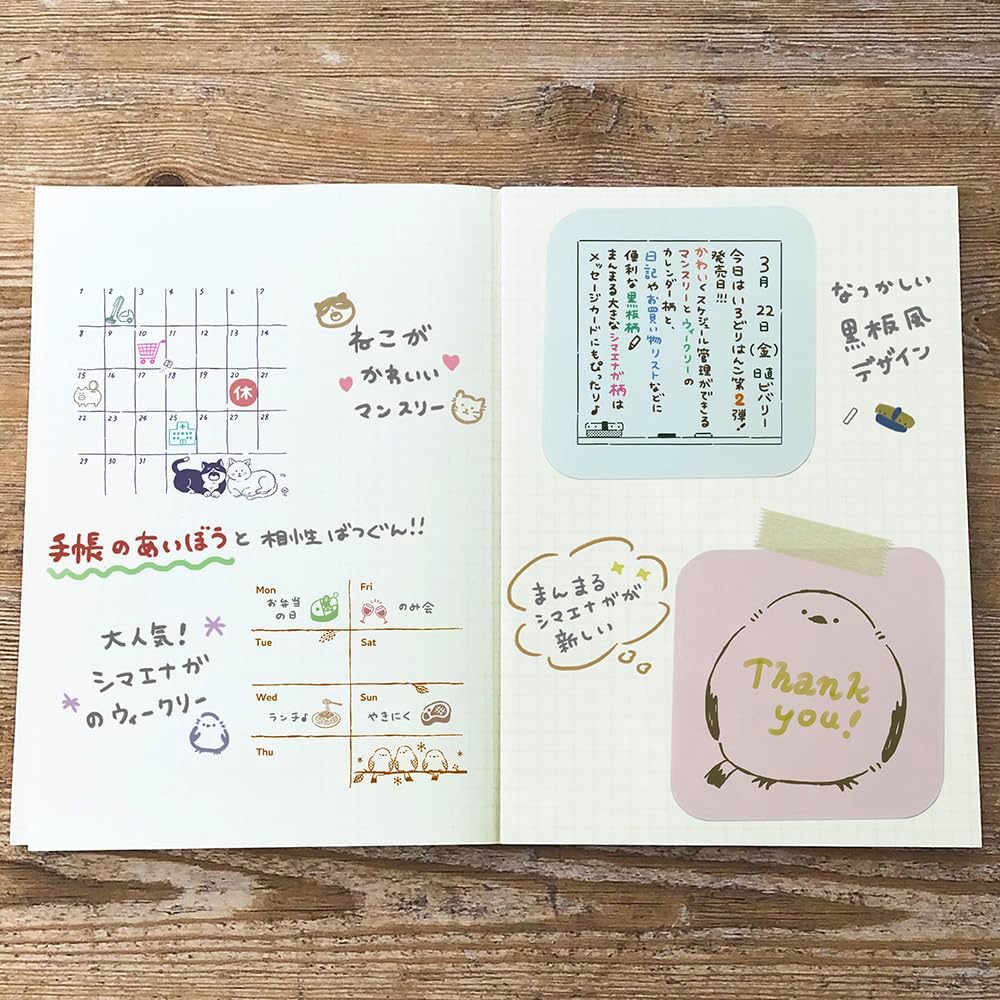 1 2 3 4 5 6 7
8 9 10 11 12 13 14
15 16 17 18 19 20 21
休
22 23 24 25 26 27 28
29 30 31
ねこが
かわいい
マンスリー
手帳のあいぼうと相性ばつぐん!!
大人気!
シマエナガ
のウィークリー
Mon
お弁当
の日
Fri
のみ会
Tue
Sat
Wed
ランチ♪
Sun
やきにく
Thu
3月22日(金)日直ビバリー
今日はいろどりはんこ第2弾!
発売日!!!
かわいくスケジュール管理ができる
マンスリーとウィークリーの
カレンダー柄と、
日記やお買い物リストなどに
便利な黒板柄
まんまる大きなシマエナガ柄は
メッセージカードにもぴったり♪
なつかしい
黒板風
デザイン
まんまる
シマエナガが
新しい
Thank
you!